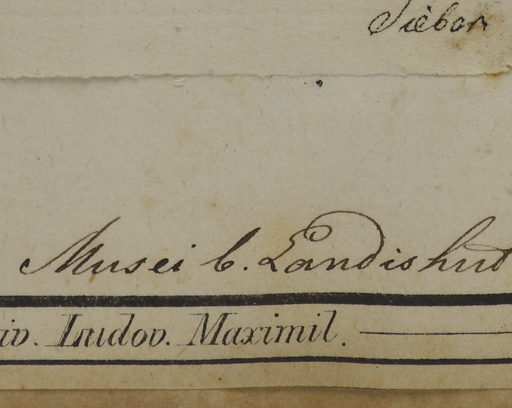 Sieber
Musei b. Landishut
iv. Ludov. Maximil.